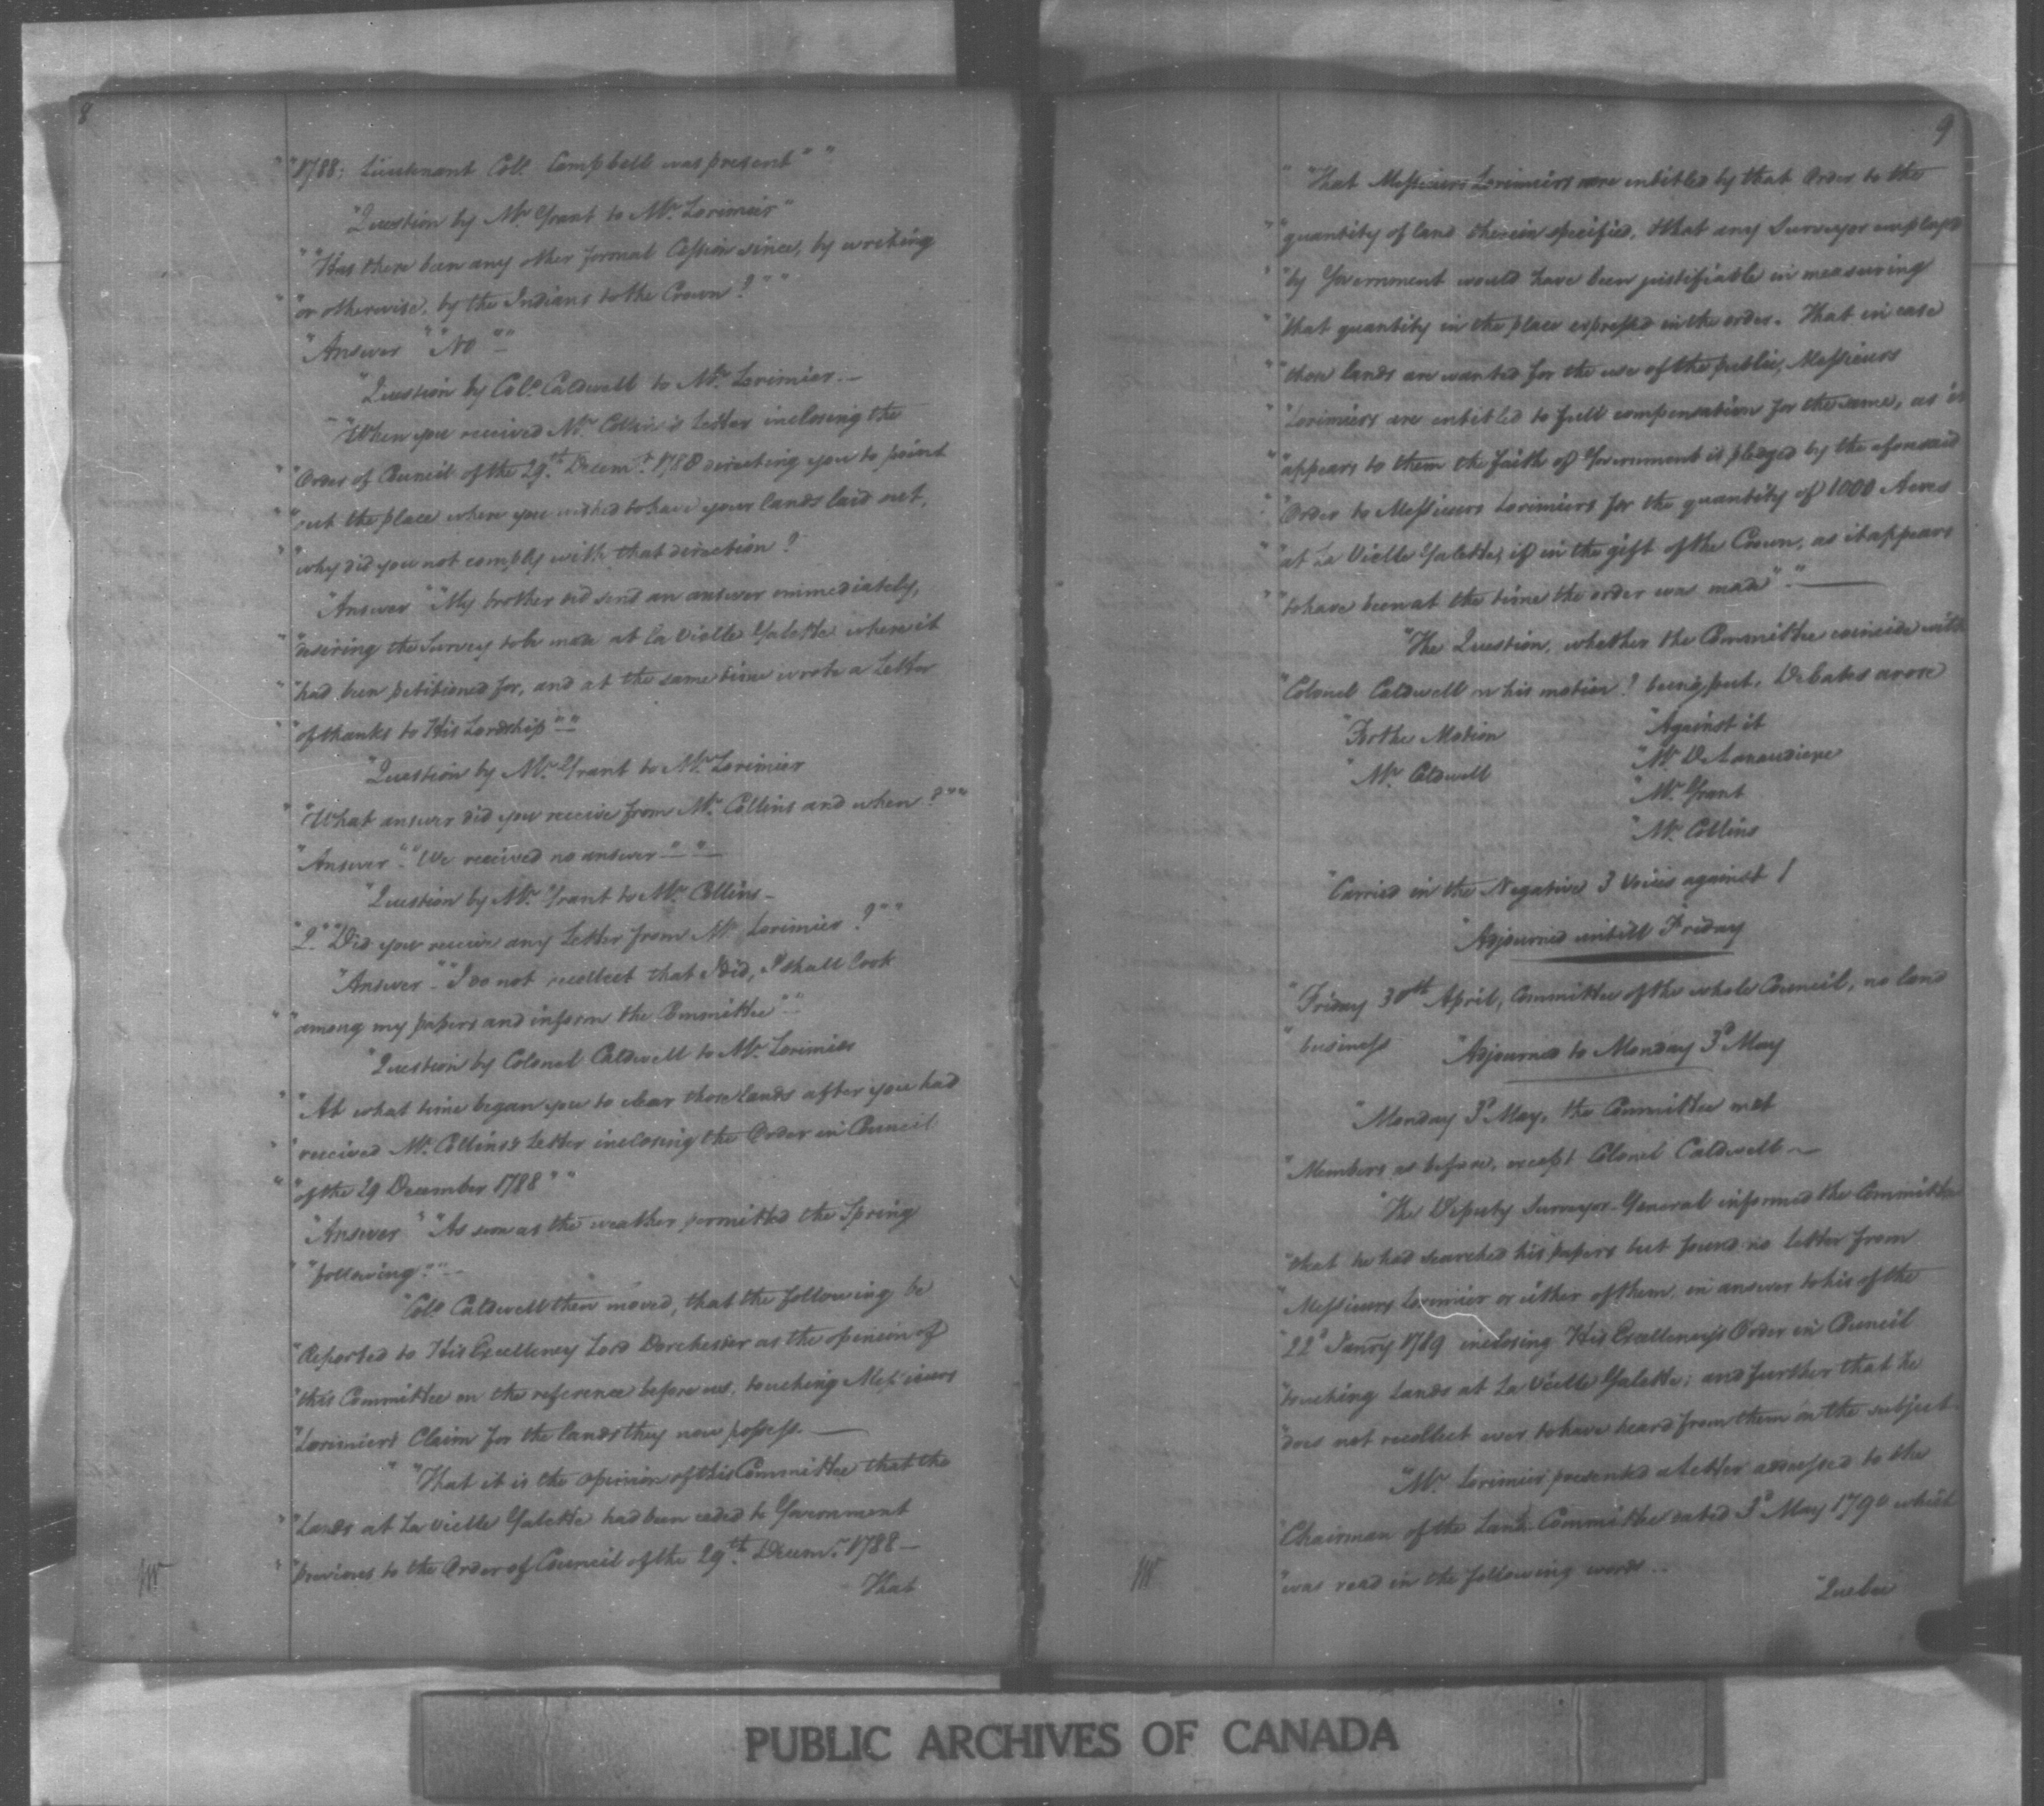 8
" "1788; Lieutenant Col. Campbell was present" "
"Question by Mr. Grant to Mr. Lorimier"
" "Has there been any other formal Cession since, by writing
" "or otherwise, by the Indians to the Crown?" "
"Answer " "No" "
"Question by Col. Caldwell to Mr. Lorimier.—
" "When you received Mr. Collins's Letter inclosing the
" "Order of Council of the 29th. Decemr. 1788 directing you to point
" "out the place where you wished to have your lands laid out,
" "why did you not comply with that direction?
"Answer " "My brother did send an answer immediately,
" "desiring the Survey to be made at la Vielle Galette where it
" "had been petitioned for, and at the same time wrote a Letter
" "of thanks to His Lordship" "
"Question by Mr. Grant to Mr. Lorimier
" "What answer did you receive from Mr. Collins and when?" "
"Answer" "We received no answer" "
"Question by Mr. Grant to Mr. Collins—
"Q." "Did you receive any Letter from Mr. Lorimier?" "
"Answer" "I do not recollect that I did, I shall look
" "among my papers and inform the Committee" "
"Question by Colonel Caldwell to Mr. Lorimier
" "At what time began you to clear those lands after you had
" "received Mr. Collins's Letter inclosing the Order in Council
" "of the 29 December 1788" "
"Answer " "As soon as the weather permitted the Spring
" "following." "
"Colo. Caldwell then moved, that the following be
"Reported to His Excellency Lord Dorchester as the opinion of
"this Committee on the reference before us, touching Messieurs
"Lorimiers Claim for the lands they now possess.—
" "That it is the opinion of this Committee that the
" "Lands at La Vielle Galette had been ceded to Government
" "previous to the Order of Council of the 29th. Decemr. 1788—
That
9
" "That Messieurs Lorimiers were entitled by that Order to the
" "quantity of land therein specified, that any Surveyor employed
" "by Government would have been justifiable in measuring
" "that quantity in the place expressed in the order. That in case
" "those lands are wanted for the use of the public, Messieurs
" "Lorimiers are entitled to full compensation for the same, as it
" "appears to them the faith of Government is pledged by the aforesaid
" "Order to Messieurs Lorimiers for the quantity of 1000 Acres
" "at La Vielle Galette, if in the gift of the Crown, as it appears
" "to have been at the time the order was made" "—
"The Question, whether the Committee coincide with
"Colonel Caldwell in his motion? being put, Debates arose
"For the Motion "Against it
"Mr. Caldwell "Mr. DeLanaudiere
"Mr. Grant
"Mr. Collins
"Carried in the Negative 3 Voices against 1
"Adjourned untill Friday
"Friday 30th April, Committee of the whole Council, no land
"business "Adjourned to Monday 3d May
"Monday 3d May, the Committee met
"Members as before, except Colonel Caldwell—
"The Deputy Surveyor General informed the Committee
"that he had searched his papers but found no letter from
"Messieurs Lorimier or either of them, in answer to his of the
"22d Janry 1789 inclosing His Excellency's Order in Council
"touching Lands at La Vielle Galette; and further that he
"does not recollect ever to have heard from them on the subject.
"Mr. Lorimier presented a letter addressed to the
"Chairman of the Land Committee dated 3d May 1790 which
"was read in the following words..
"Quebec
PUBLIC ARCHIVES OF CANADA